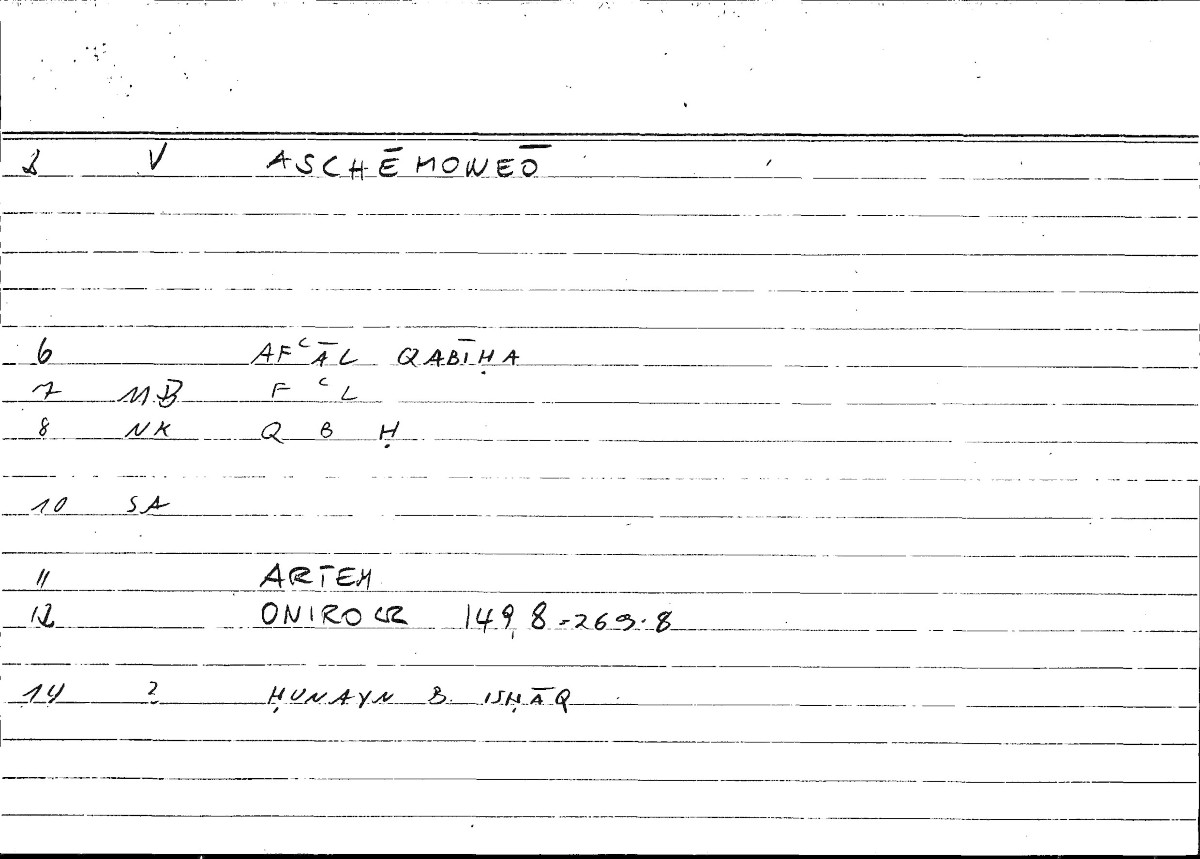 2 V ASCHĒMONEŌ
6 AFʿĀL QABĪḤA
7 MB F ʿ L
8 NK Q B Ḥ
10 SA
11 ARTEM
12 ONIROCR 149,8-269.8
14 2 ḤUNAYN B. ISḤĀQ